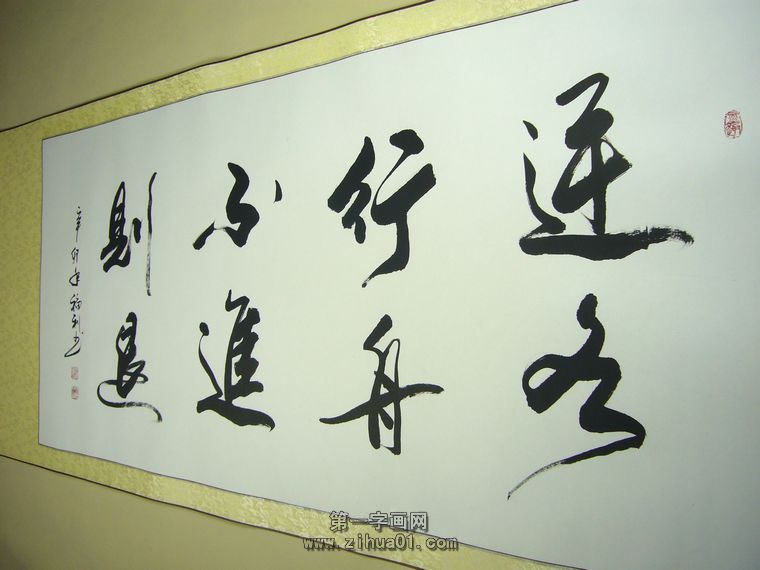 逆水
行舟
不進
則退
辛卯年福利书
第一字画网
www.zihua01.com